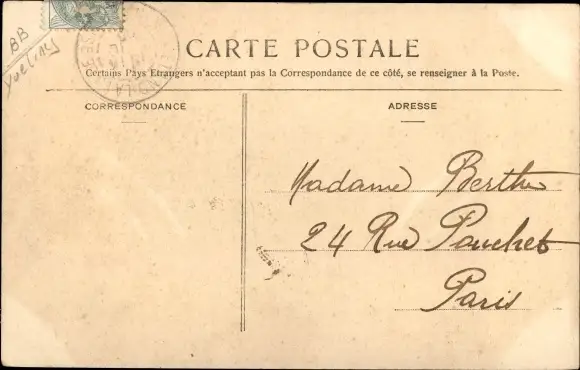 BB
Yvelines
CARTE POSTALE
Certains Pays Etrangers n'acceptent pas la Correspondance de ce côté, se renseigner à la Poste.
CORRESPONDANCE
ADRESSE
Madame Berthe
24 Rue Pouchet
Paris